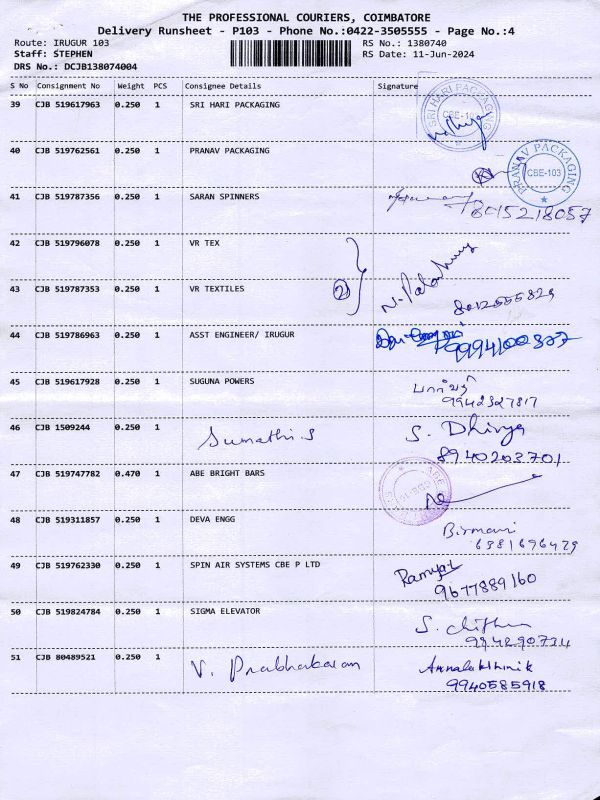 THE PROFESSIONAL COURIERS, COIMBATORE
Delivery Runsheet - P103 - Phone No.:0422-3505555 - Page No.:4
Route: IRUGUR 103 RS No.: 1380740
Staff: STEPHEN RS Date: 11-Jun-2024
DRS No.: DCJB138074004
S No Consignment No Weight PCS Consignee Details Signature
39 CJB 519617963 0.250 1 SRI HARI PACKAGING
SRI HARI PACKAGING
40 CJB 519762561 0.250 1 PRANAV PACKAGING
PRANAV PACKAGING CBE-103
41 CJB 519787356 0.250 1 SARAN SPINNERS
8015218057
42 CJB 519796078 0.250 1 VR TEX
43 CJB 519787353 0.250 1 VR TEXTILES
2
44 CJB 519786963 0.250 1 ASST ENGINEER/ IRUGUR
45 CJB 519617928 0.250 1 SUGUNA POWERS
9942327817
46 CJB 1509244 0.250 1 Sumathi.S S. Dhivya
8940203701
47 CJB 519747782 0.470 1 ABE BRIGHT BARS
48 CJB 519311857 0.250 1 DEVA ENGG
6381696479
49 CJB 519762330 0.250 1 SPIN AIR SYSTEMS CBE P LTD
9677889160
50 CJB 519824784 0.250 1 SIGMA ELEVATOR
51 CJB 80489521 0.250 1 V. Prabhakaran
9940585918